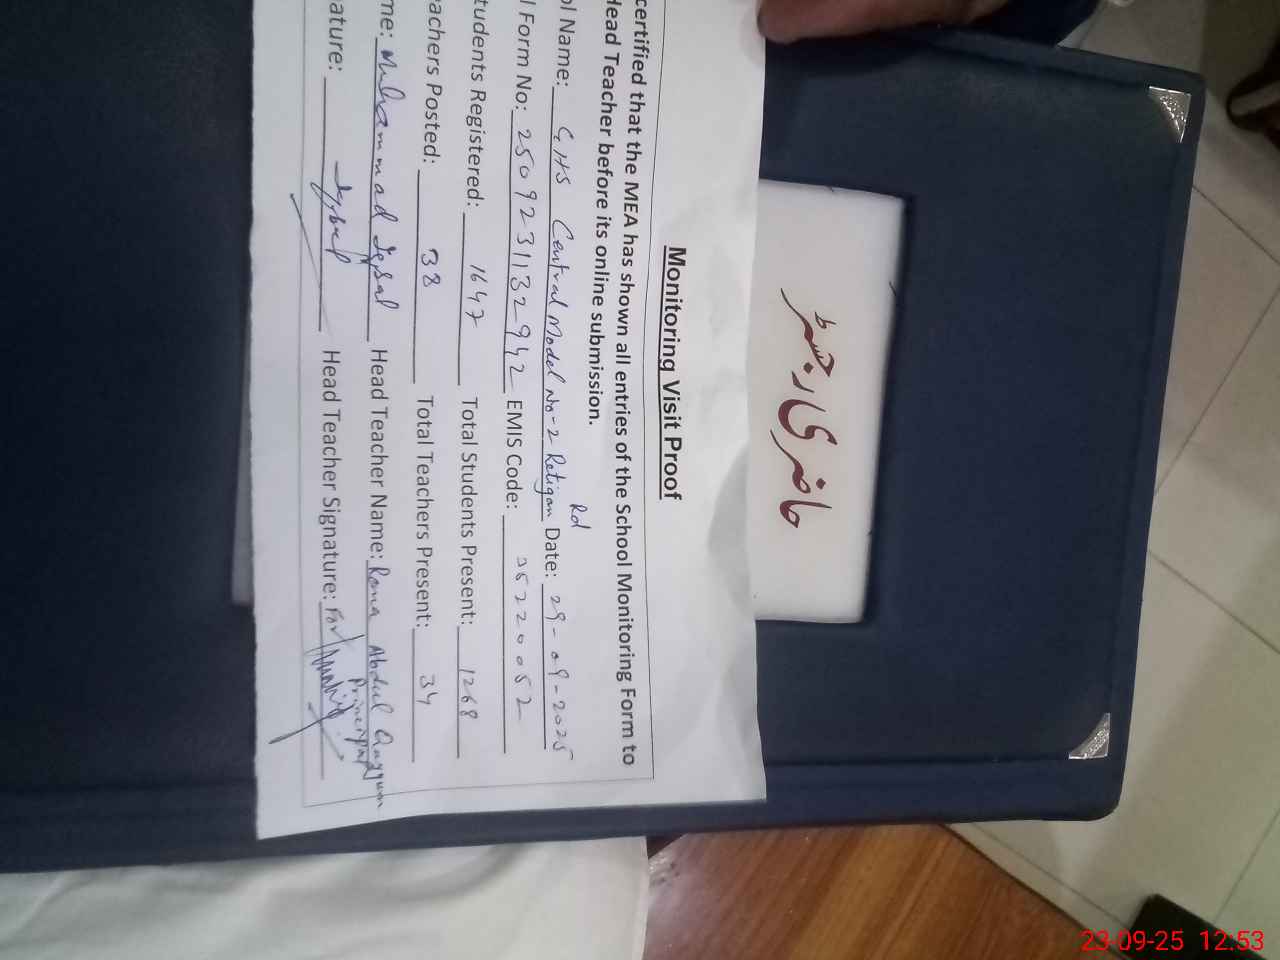 Monitoring Visit Proof
certified that the MEA has shown all entries of the School Monitoring Form to
Head Teacher before its online submission.
ol Name: GHS Central Model No-2 Retigan Rd Date: 29-09-2025
l Form No: 2509231132942 EMIS Code: 35220052
tudents Registered: 1647 Total Students Present: 1268
eachers Posted: 38 Total Teachers Present: 34
me: Muhammad Iqbal Head Teacher Name: Rana Abdul Qayyum
Principal
nature: Iqbal Head Teacher Signature: For
حاضری رجسٹر
23-09-25 12:53